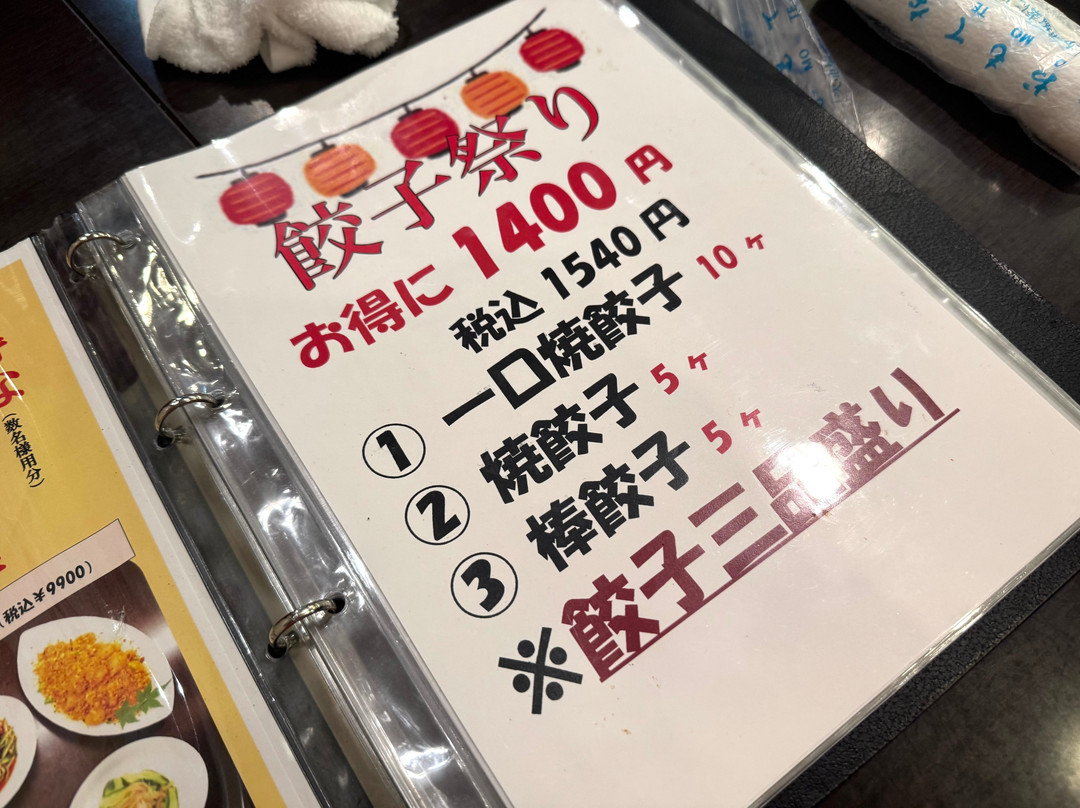 餃子祭り
お得に 1400 円
税込 1540 円
① 一口焼餃子 10ヶ
② 焼餃子 5ヶ
③ 棒餃子 5ヶ
※餃子三品盛り
(数名様用分)
(税込¥9900)